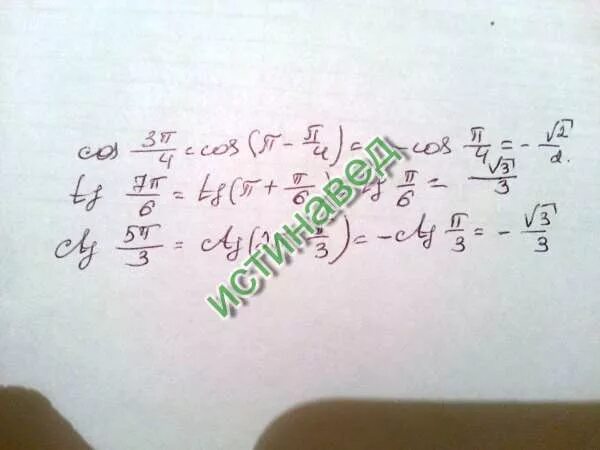 cos 3π/4 = cos(π - π/4) = - cos π/4 = - √2/2.
tg 7π/6 = tg(π + π/6) = tg π/6 = √3/3
ctg 5π/3 = ctg(2 π/3) = - ctg π/3 = - √3/3
истинавед